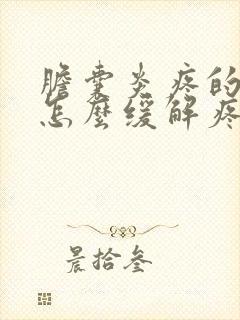 膽囊炎疼的
怎麼緩解疼
晨拾叁